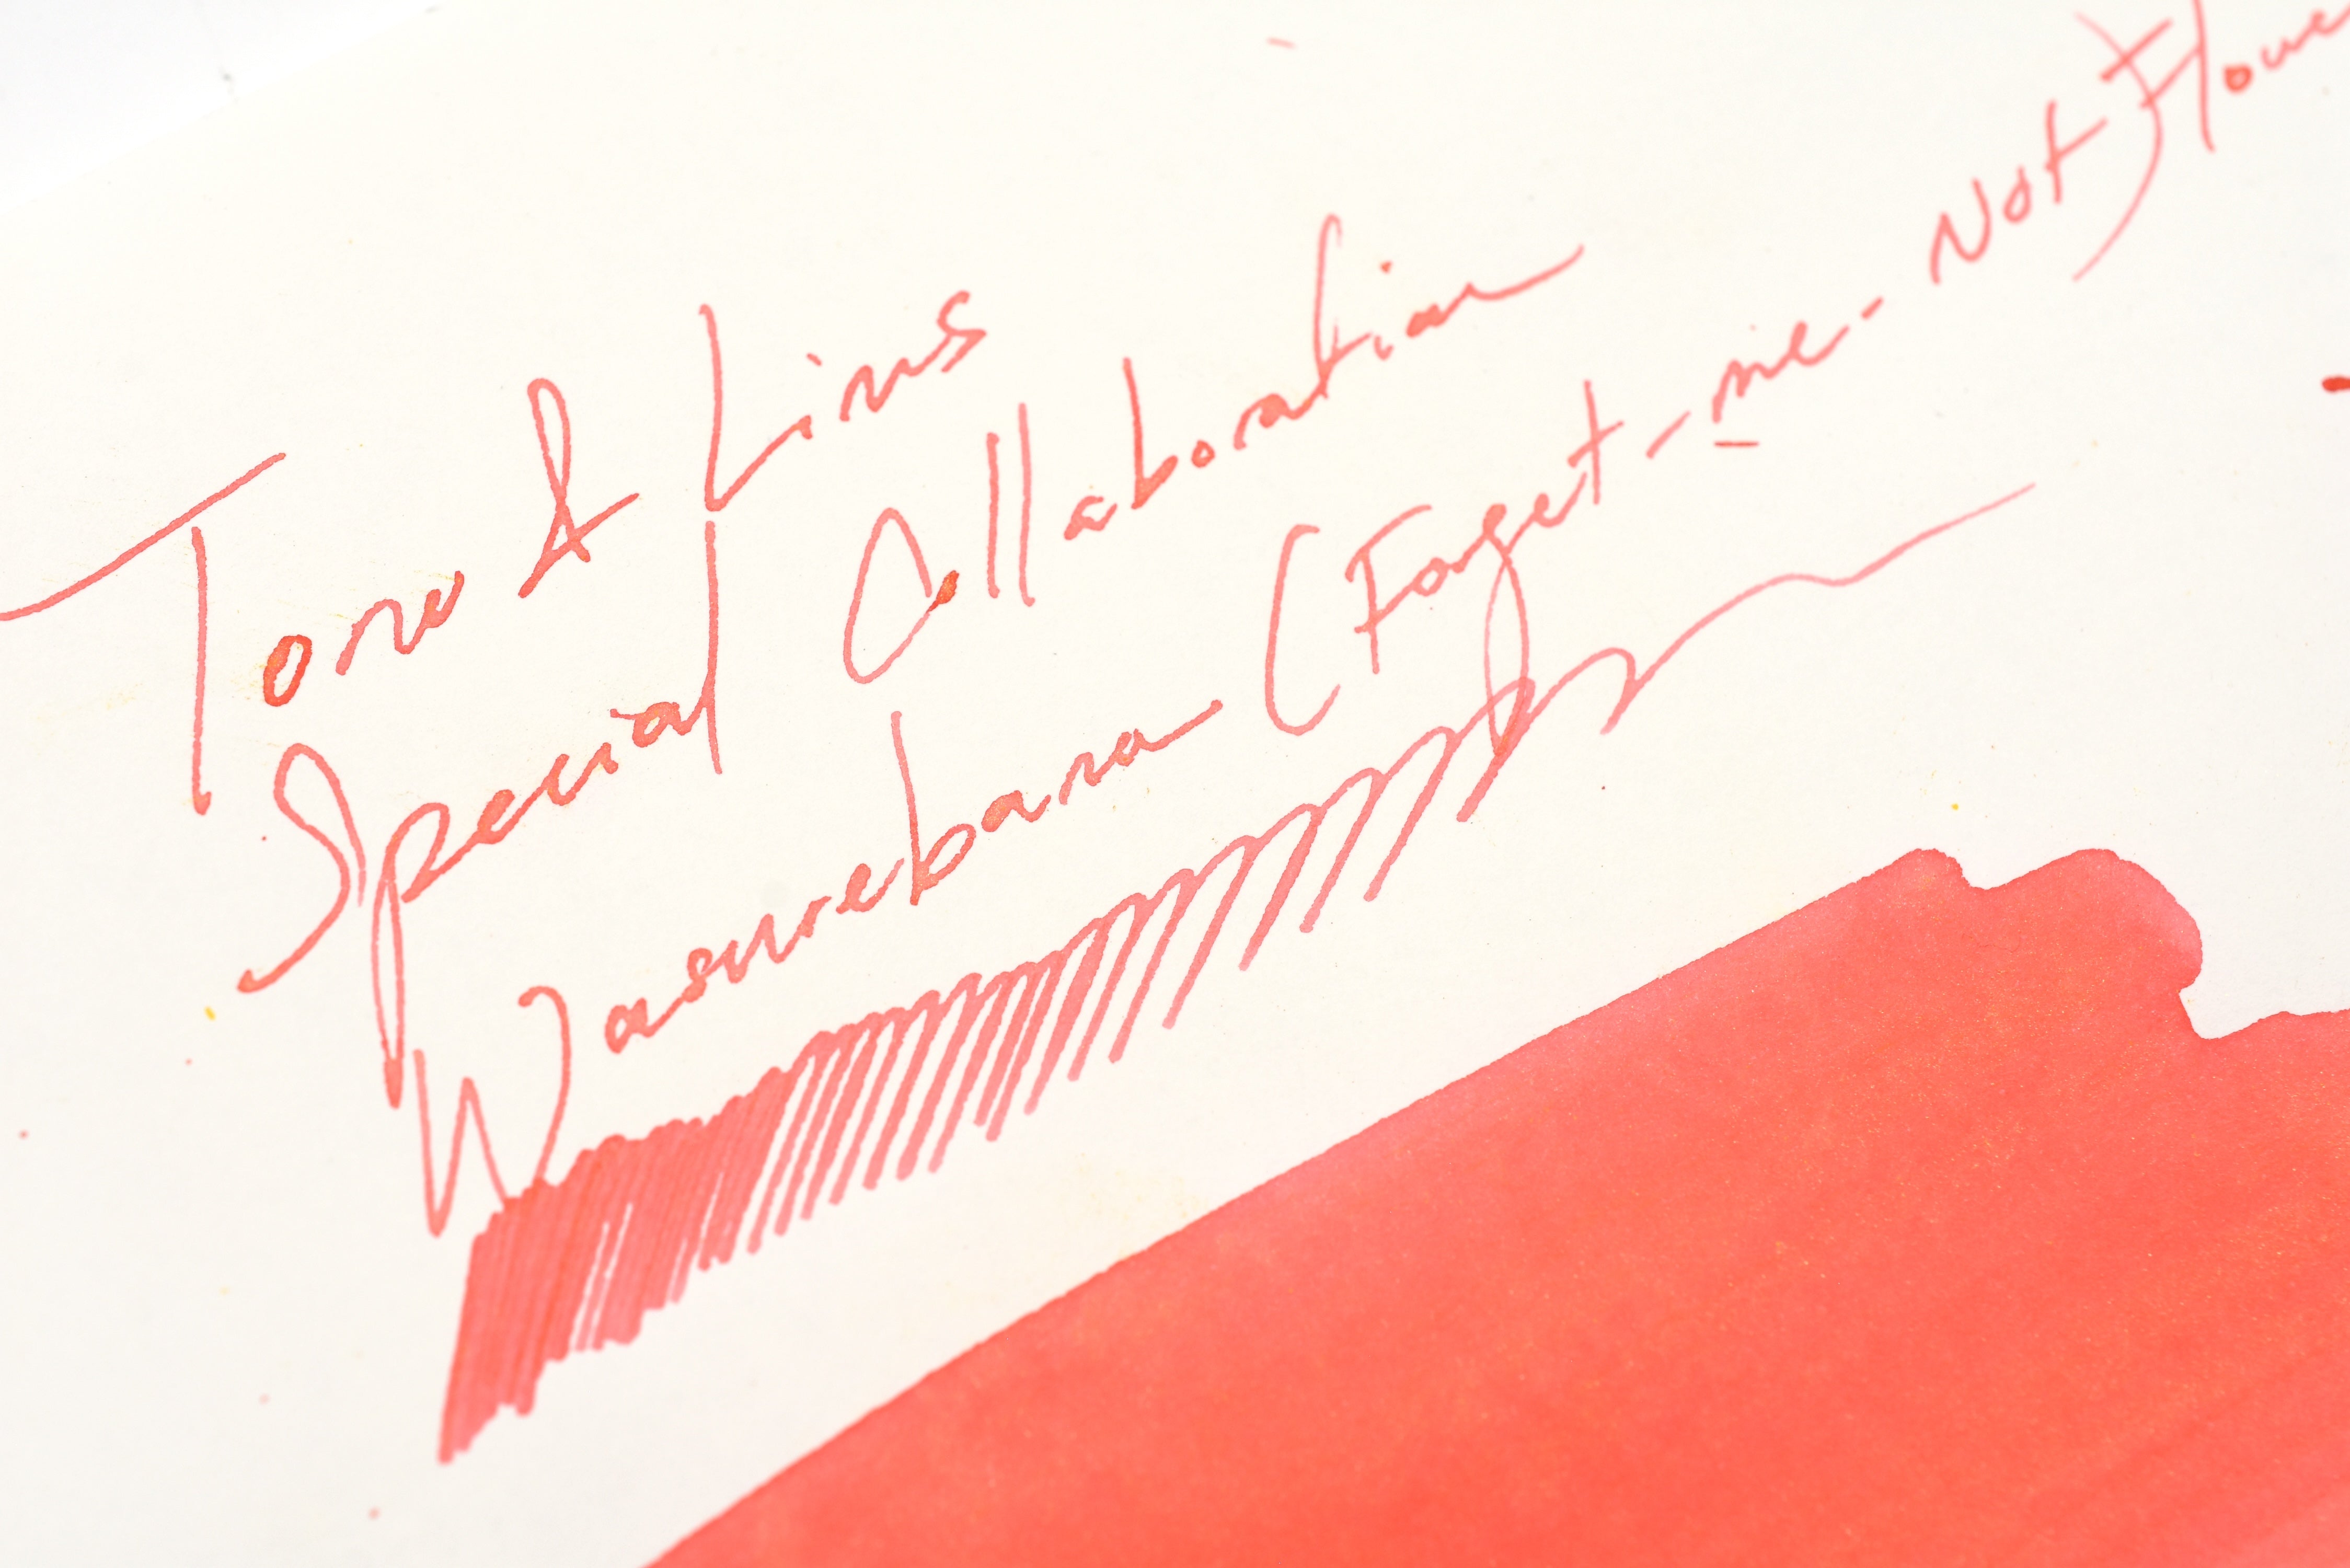 Tono & Lims
Special Collaboration
Wasurebana (Forget-me-Not) Flowe